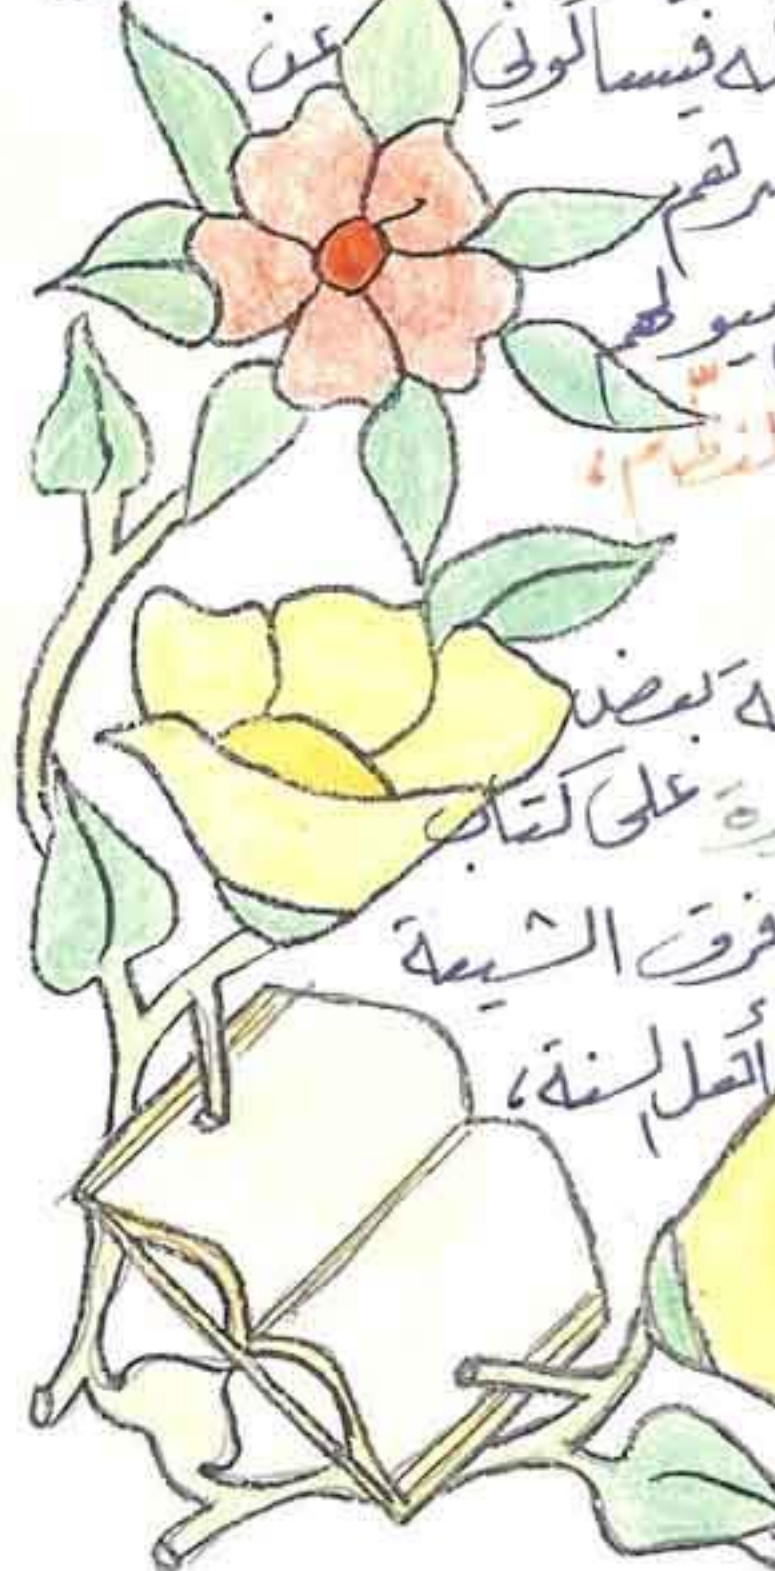 فيسألوني عن
يولهم
النظام،
بعض
على كتاب
فرق الشيعة
أهل السنة،